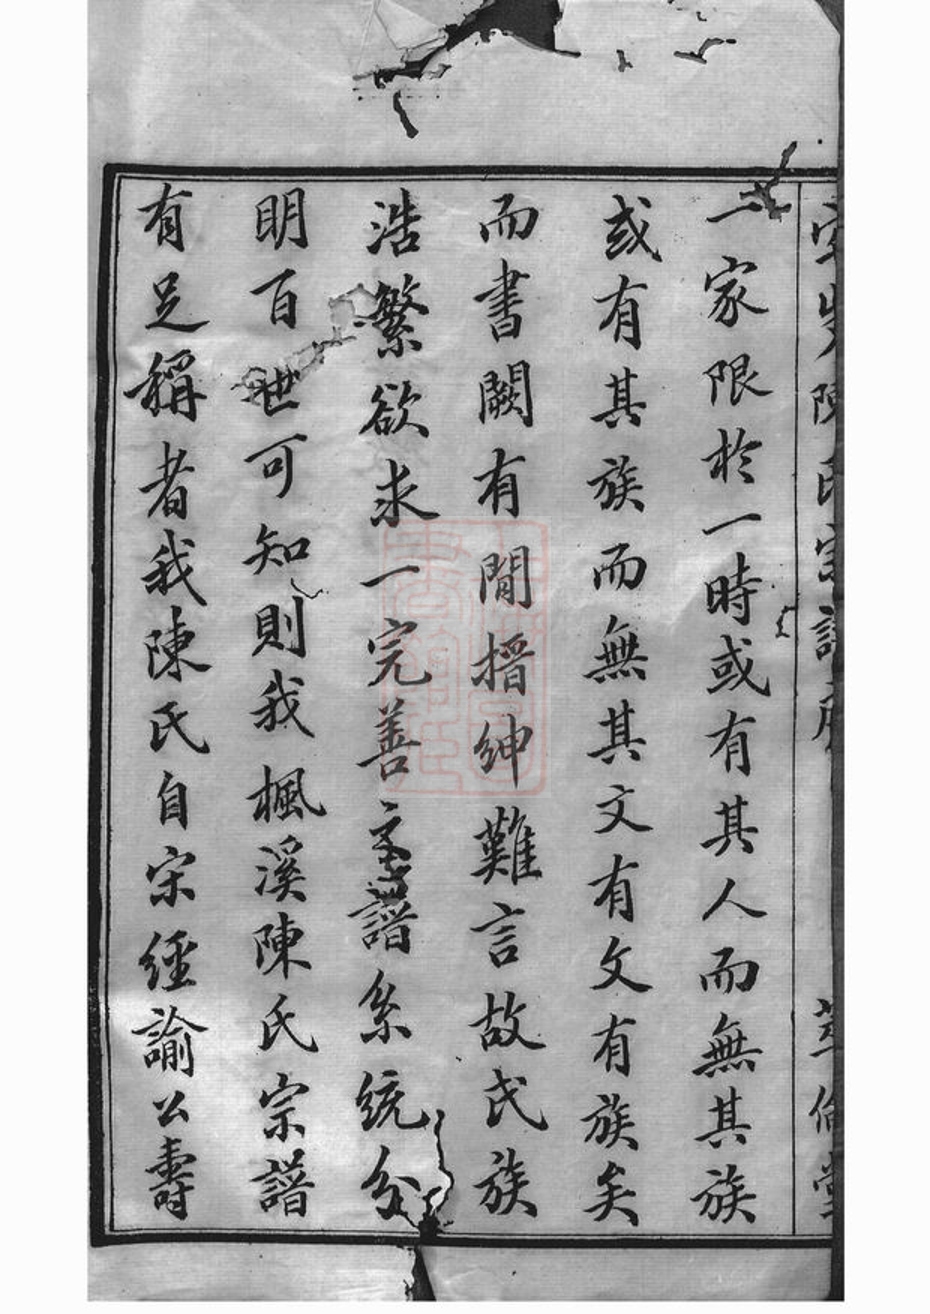 陳氏宗譜序
一家限於一時或有其人而無其族
或有其族而無其文有文有族矣
而書闕有間搢紳難言故氏族
浩繁欲求一完善之譜系統分
明百世可知則我楓溪陳氏宗譜
有足稱者我陳氏自宋經諭公壽